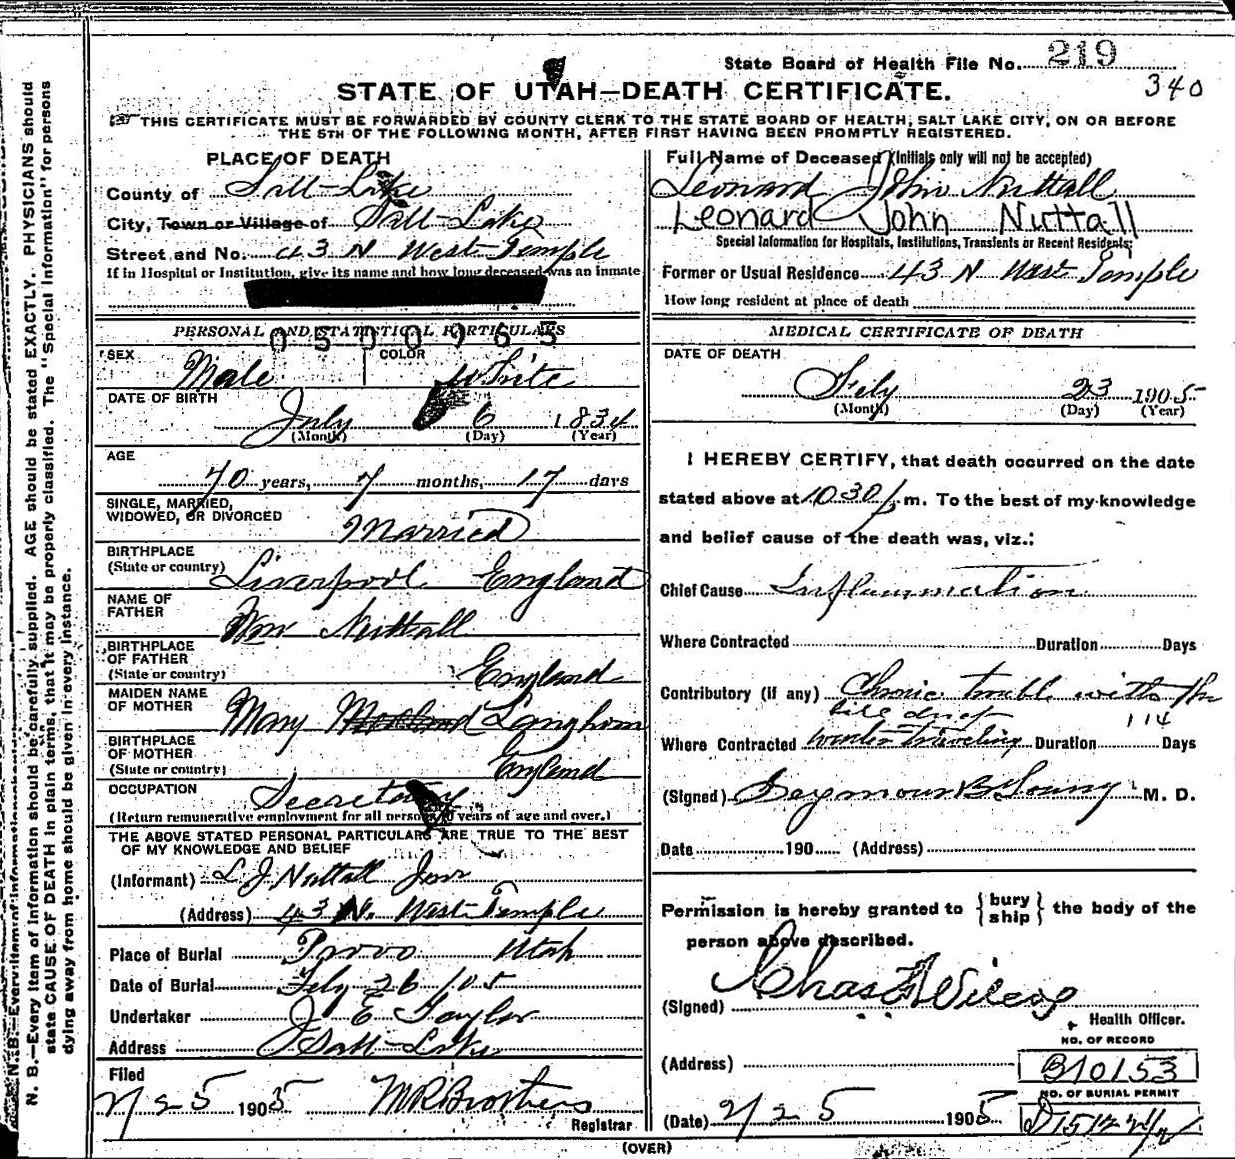 State Board of Health File No. 219
340
STATE OF UTAH—DEATH CERTIFICATE.
THIS CERTIFICATE MUST BE FORWARDED BY COUNTY CLERK TO THE STATE BOARD OF HEALTH, SALT LAKE CITY, ON OR BEFORE
THE 5TH OF THE FOLLOWING MONTH, AFTER FIRST HAVING BEEN PROMPTLY REGISTERED.
PLACE OF DEATH
County of Salt-Lake
City, Town or Village of Salt-Lake
Street and No. 43 N West-Temple
If in Hospital or Institution, give its name and how long deceased was an inmate
PERSONAL AND STATISTICAL PARTICULARS
0500965
SEX
COLOR
Male White
DATE OF BIRTH
July 6 1834
(Month) (Day) (Year)
AGE
70 years, 7 months, 17 days
SINGLE, MARRIED,
WIDOWED, OR DIVORCED
Married
BIRTHPLACE
(State or country) Liverpool England
NAME OF
FATHER
Wm Nuttall
BIRTHPLACE
OF FATHER
(State or country) England
MAIDEN NAME
OF MOTHER
Mary Langhorn
BIRTHPLACE
OF MOTHER
(State or country) England
OCCUPATION
Secretary
(Return remunerative employment for all persons 10 years of age and over.)
THE ABOVE STATED PERSONAL PARTICULARS ARE TRUE TO THE BEST
OF MY KNOWLEDGE AND BELIEF
(Informant) L J Nuttall Junr
(Address) 43 N. West-Temple
Place of Burial Provo Utah
Date of Burial Feby 26 /05
Undertaker J E Taylor
Address Salt-Lake
Filed
2/25 1905 M R Brothers
Registrar
Full Name of Deceased (Initials only will not be accepted)
Leonard John Nuttall
Leonard John Nuttall
Special Information for Hospitals, Institutions, Transients or Recent Residents:
Former or Usual Residence 43 N West Temple
How long resident at place of death
MEDICAL CERTIFICATE OF DEATH
DATE OF DEATH
Feby 23 1905
(Month) (Day) (Year)
I HEREBY CERTIFY, that death occurred on the date
stated above at 10 30 p.m. To the best of my knowledge
and belief cause of the death was, viz.:
Chief Cause Inflammation
Where Contracted Duration Days
Contributory (if any) Chronic trouble with the
114
Where Contracted winter traveling Duration Days
(Signed) Seymour B Young M. D.
Date 190 (Address)
Permission is hereby granted to {bury
ship} the body of the
person above described.
(Signed) Chas
Health Officer.
NO. OF RECORD
(Address) B10153
NO. OF BURIAL PERMIT
(Date) 2/25 1905
(OVER)
N. B.—Every item of information should be carefully supplied. AGE should be stated EXACTLY. PHYSICIANS should
state CAUSE OF DEATH in plain terms, that it may be properly classified. The "Special Information" for persons
dying away from home should be given in every instance.